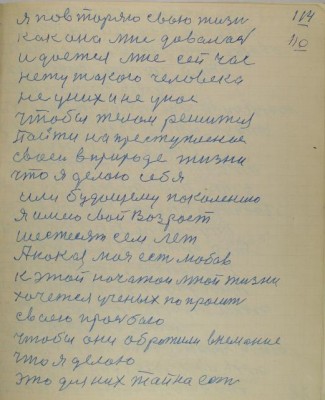 я повторяю свою жизн
114
как она мне давалас
110
и дается мне сей час
нету такого человека
не у них и не у нас
чтобы телом решился
пойти на преступление
своей в природе жизни
что я делаю себя
или будощему поколению
я имею свой возраст
шестесят сем лет
А какая моя ест любов
к этой початой мной жизни
хочется ученых попросит
своею прозбаю
чтобы они обратили внемание
что я делаю
это для них тайна